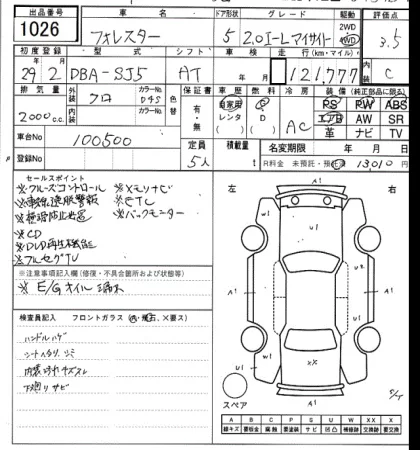 出品番号 車名 ドア形状 グレード 駆動 評価点
1026 フォレスター 5 2.0I-L アイサイト 2WD 4WD 3.5
初度登録 型式 シフト 車検 走行(km・マイル) 内装
29年 2月 DBA-SJ5 AT 年 月 121,777 C
排気量 外装 カラーNo. 色替 保証書 車歴 燃料 冷房 装備(純正部品に限る)
2000 c.c. クロ D4S 有・無 自家用 レンタ G D AC PS PW ABS
エアB AW SR
革 ナビ TV
車台No. 100500 定員 5人 積載量 名変期限 年 月 日
登録No. R料金 未預託・預託 13010
セールスポイント
※クルーズコントロール ※メモリナビ
※車線逸脱警報 ※ETC
※横滑防止装置 ※バックモニター
※CD
※DVD再生機能
※フルセグTV
※注意事項記入欄(修復・不具合箇所および改造等)
※E/Gオイル漏れ
検査員記入 フロントガラス (A・飛石、X要ス)
ハンドルハゲ
シートヘタリ、シミ
内装汚れキズスレ
下廻りサビ
左 右
A1
W1 U1
A1 A1
U1
A1 A1
U2 W1
XX
A1
スペア
S/T
A B P C S U W X XX
線キズ 要板金 要塗装 サビ 凹 補修跡 要交換 交換済